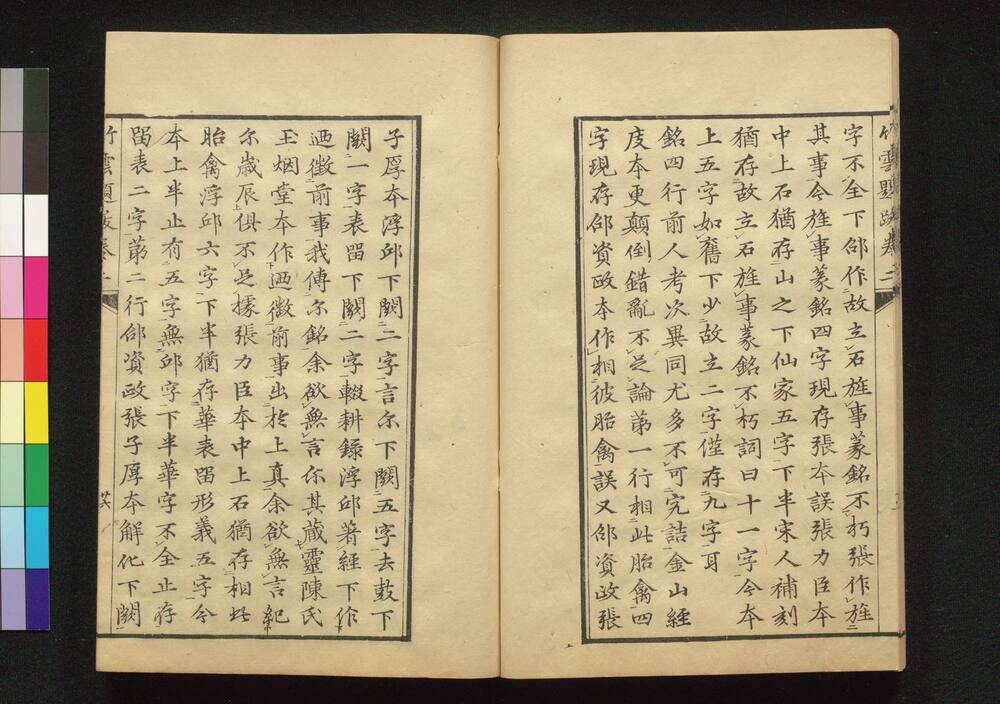 竹雲題跋卷二
字不全下邰作故立石旌事篆銘不朽張作旌
其事今旌事篆銘四字現存張本誤張力臣本
中上石猶存山之下仙家五字下半宋人補刻
猶存故立石旌事篆銘不朽詞曰十一字今本
上五字如舊下少故立二字僅存九字耳
銘四行前人考次異同尤多不可究詰金山經
庋本更顛倒錯亂不足論苐一行相此胎禽四
字現存邰資政本作相彼胎禽誤又邰資政張
子厚本浮邱下闕二字言尔下闕五字去鼓下
闕一字表留下闕二字輟耕錄浮邱著經下作
迺徵前事我傳尔銘余欲無言尔其藏靈陳氏
玉烟堂本作迺徵前事出於上真余欲無言紀
尔歲辰俱不足據張力臣本中上石猶存相此
胎禽浮邱六字下半猶存華表留形義五字今
本上半止有五字無邱字下半華字不全止存
留表二字苐二行邰資政張子厚本解化下闕
竹雲題跋卷二
廿六